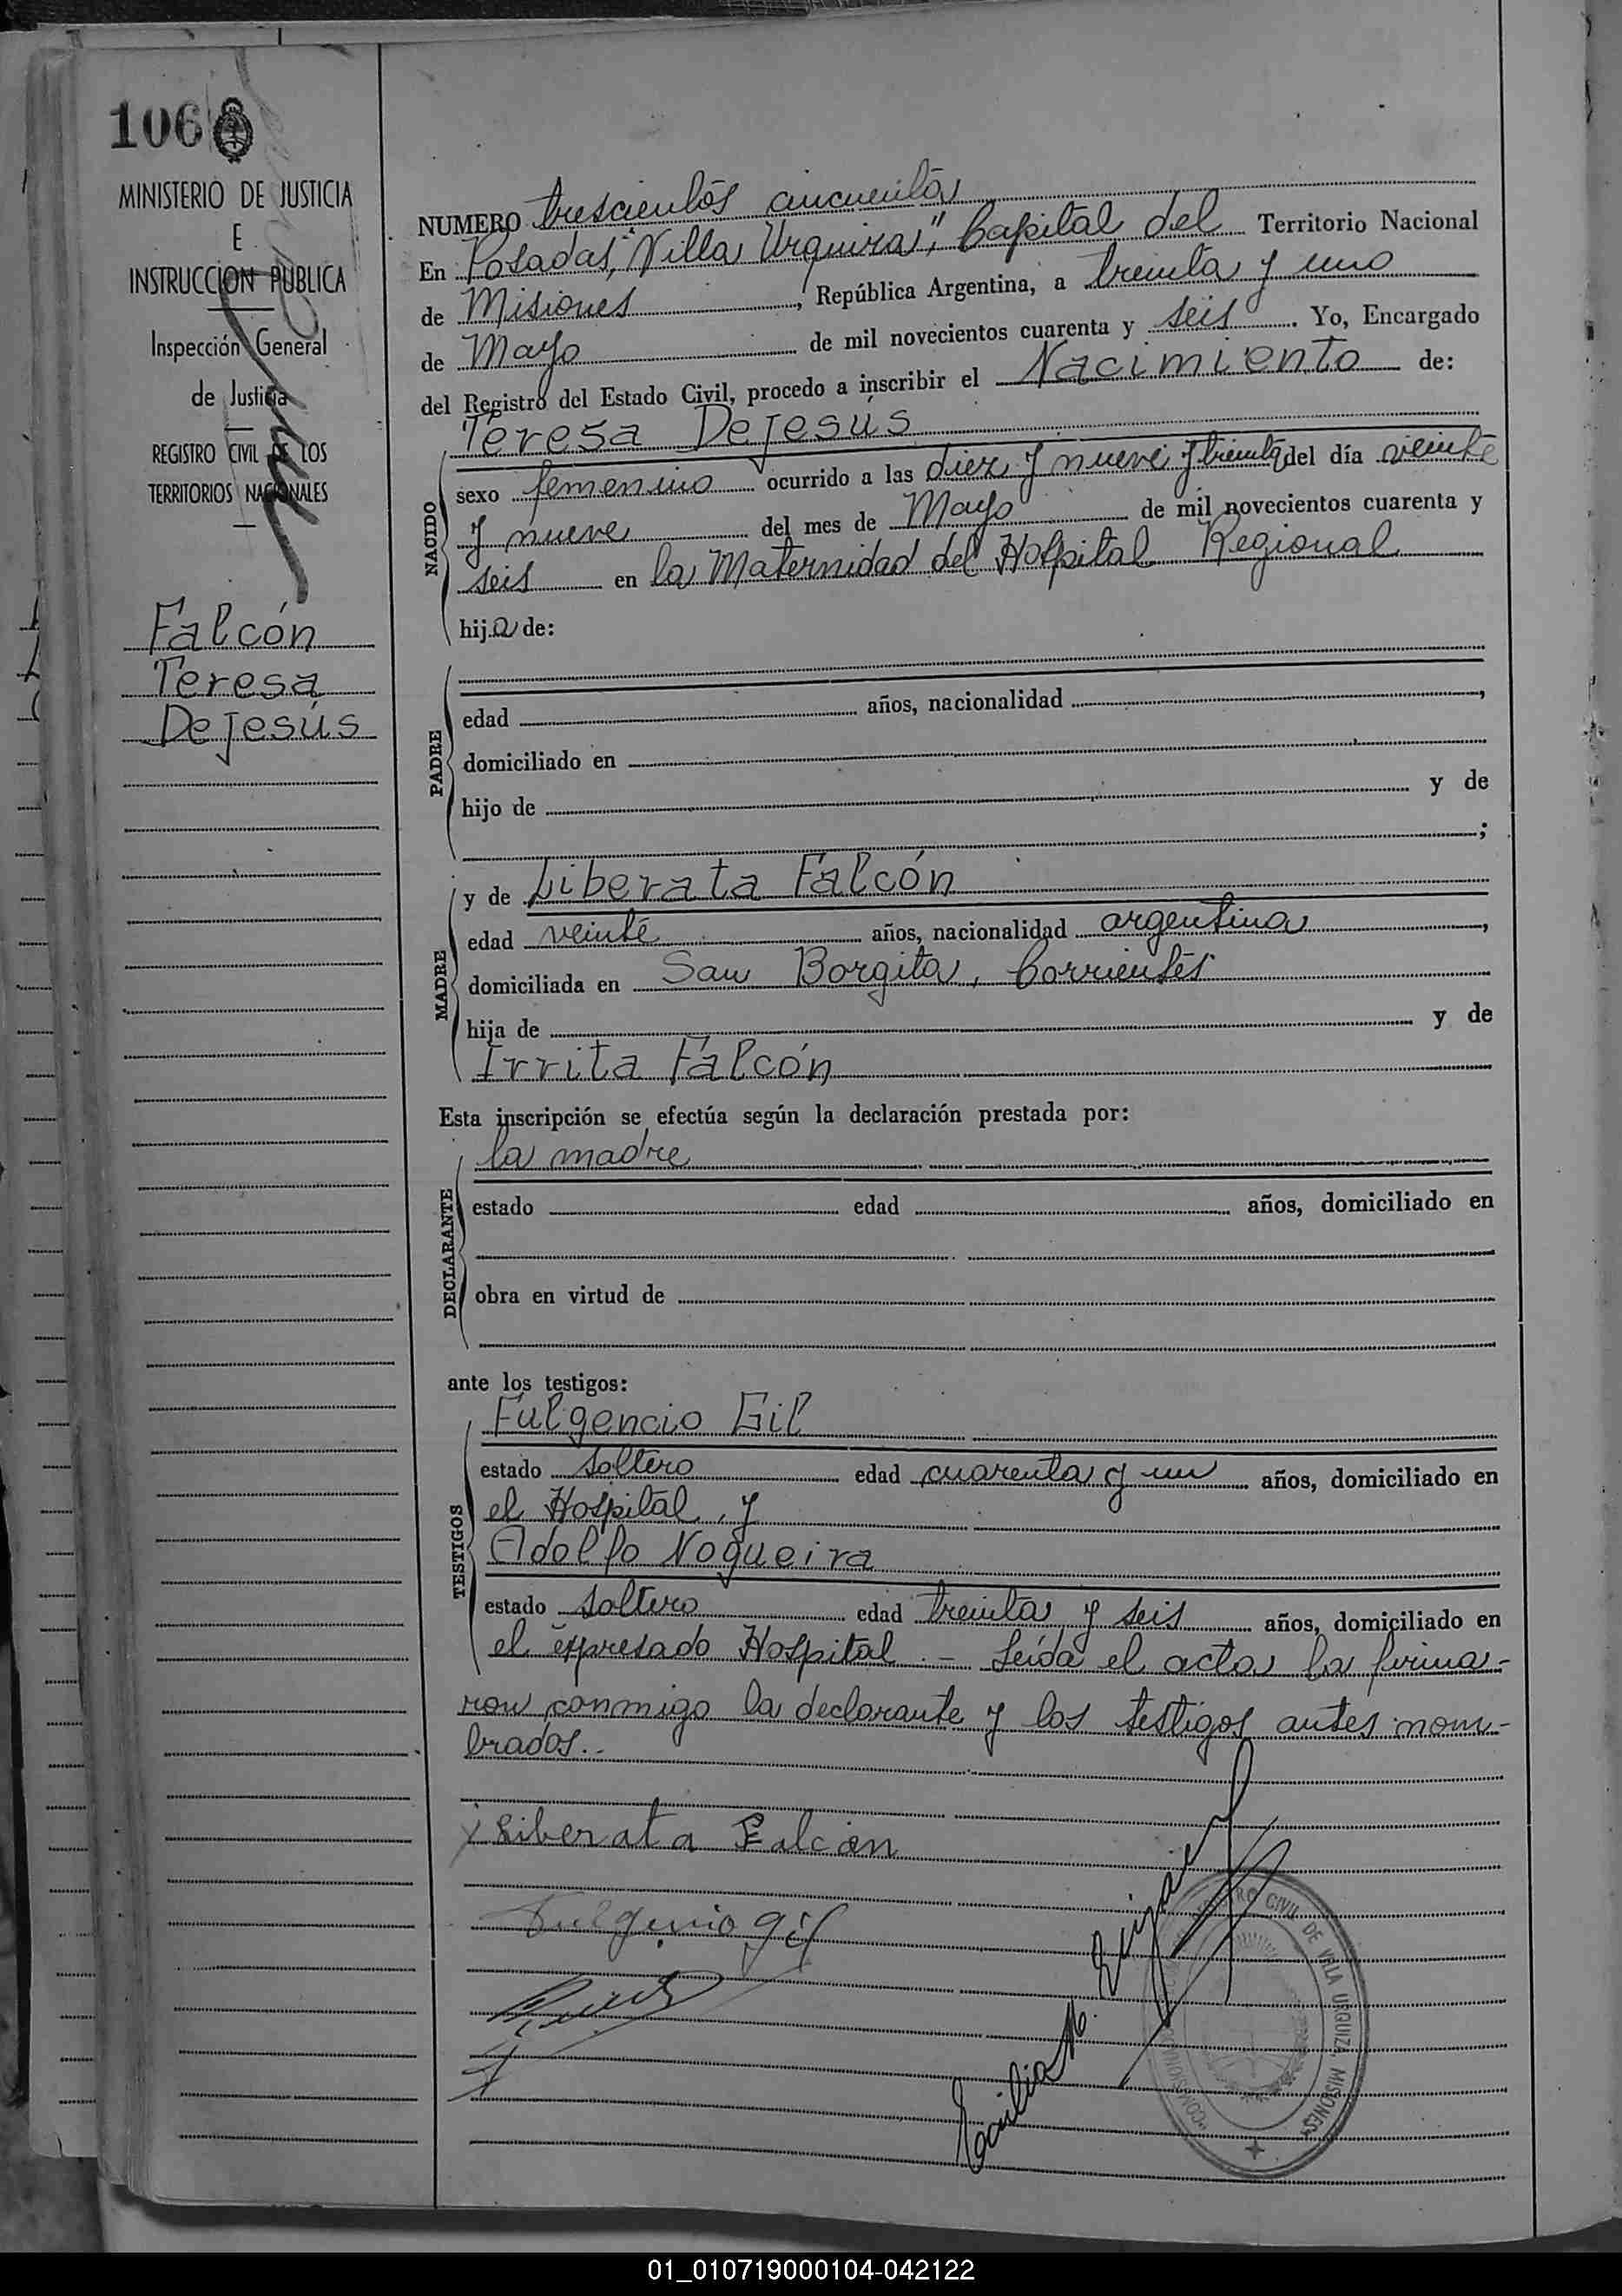 106
MINISTERIO DE JUSTICIA
E
INSTRUCCION PUBLICA
Inspección General
de Justicia
REGISTRO CIVIL DE LOS
TERRITORIOS NACIONALES
Falcón
Teresa
De Jesús
NUMERO trescientos cincuenta
En Posadas, "Villa Urquiza", Capital del Territorio Nacional
de Misiones, República Argentina, a treinta y uno
de Mayo de mil novecientos cuarenta y seis. Yo, Encargado
del Registro del Estado Civil, procedo a inscribir el Nacimiento de:
NACIDO
Teresa De Jesús
sexo femenino ocurrido a las diez y nueve y treinta del día veinte
y nueve del mes de Mayo de mil novecientos cuarenta y
seis en la Maternidad del Hospital Regional
hija de:
PADRE
edad años, nacionalidad ,
domiciliado en
hijo de y de
;
MADRE
y de Liberata Falcón
edad veinte años, nacionalidad argentina,
domiciliada en San Borgita, Corrientes
hija de y de
Irrita Falcón
Esta inscripción se efectúa según la declaración prestada por:
DECLARANTE
la madre
estado edad años, domiciliado en
obra en virtud de
ante los testigos:
TESTIGOS
Fulgencio Gil
estado soltero edad cuarenta y un años, domiciliado en
el Hospital, y
Adolfo Nogueira
estado soltero edad treinta y seis años, domiciliado en
el expresado Hospital.- Leída el acta la firma-
ron conmigo la declarante y los testigos antes nom-
brados.-
Liberata Falcon
Fulgencio Gil
CIVIL DE VILLA URQUIZA MISIONES
01_010719000104-042122